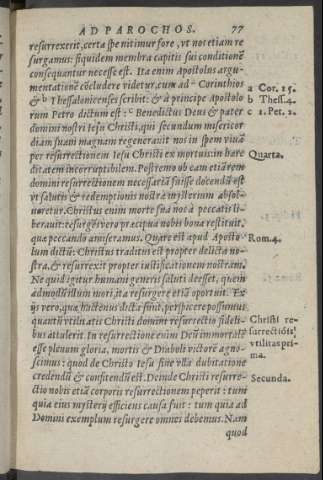 AD PAROCHOS. 77
resurrexerit, certa spe nitimur fore, vt nos etiam re
surgamus: siquidem membra capitis sui conditionē
consequantur necesse est. Ita enim Apostolus argu-
mentatione cōcludere videtur, cum ad a Corinthios
a Cor. 15.
& b Thessalonicenses scribit: & à principe Apostolo
b Thess. 4.
rum Petro dictum est: c Benedictus Deus & pater
c 1. Pet. 1.
domini nostri Iesu Christi, qui secundum misericor
diam suam magnam regenerauit nos in spem viuā
per resurrectionem Iesu Christi ex mortuis: in hære
Quarta.
ditatem incorruptibilem. Postremo ob eam etiā rem
domini resurrectionem necessariā fuisse docendū est
vt salutis & redemptionis nostræ mysterium absol-
ueretur. Christus enim morte sua nos à peccatis li-
berauit: resurgēs vero præcipua nobis bona restituit,
quæ peccando amiseramus. Quare est apud Aposto
lum dictū: Christus traditus est propter delicta no-
Rom. 4.
stra, & resurrexit propter iustificationem nostram.
Ne quid igitur humani generis saluti deesset, quem
admodū illum mori, ita resurgere etiā oportuit. Ex
ijs vero, quæ hactenus dicta sunt, perspicere possumus
quantū vtilitatis Christi domini resurrectio fideli-
Christi re-
bus attulerit. In resurrectione enim Deū immortalē
surrectiōis
esse plenum gloria, mortis & Diaboli victorē agno-
vtilitas pri-
scimus: quod de Christo Iesu sine vlla dubitatione
ma.
credendū & confitendū est. Deinde Christi resurre-
Secunda.
ctio nobis etiā corporis resurrectionem peperit: tum
quia eius mysterij efficiens causa fuit: tum quia ad
Domini exemplum resurgere omnes debemus. Nam
quod